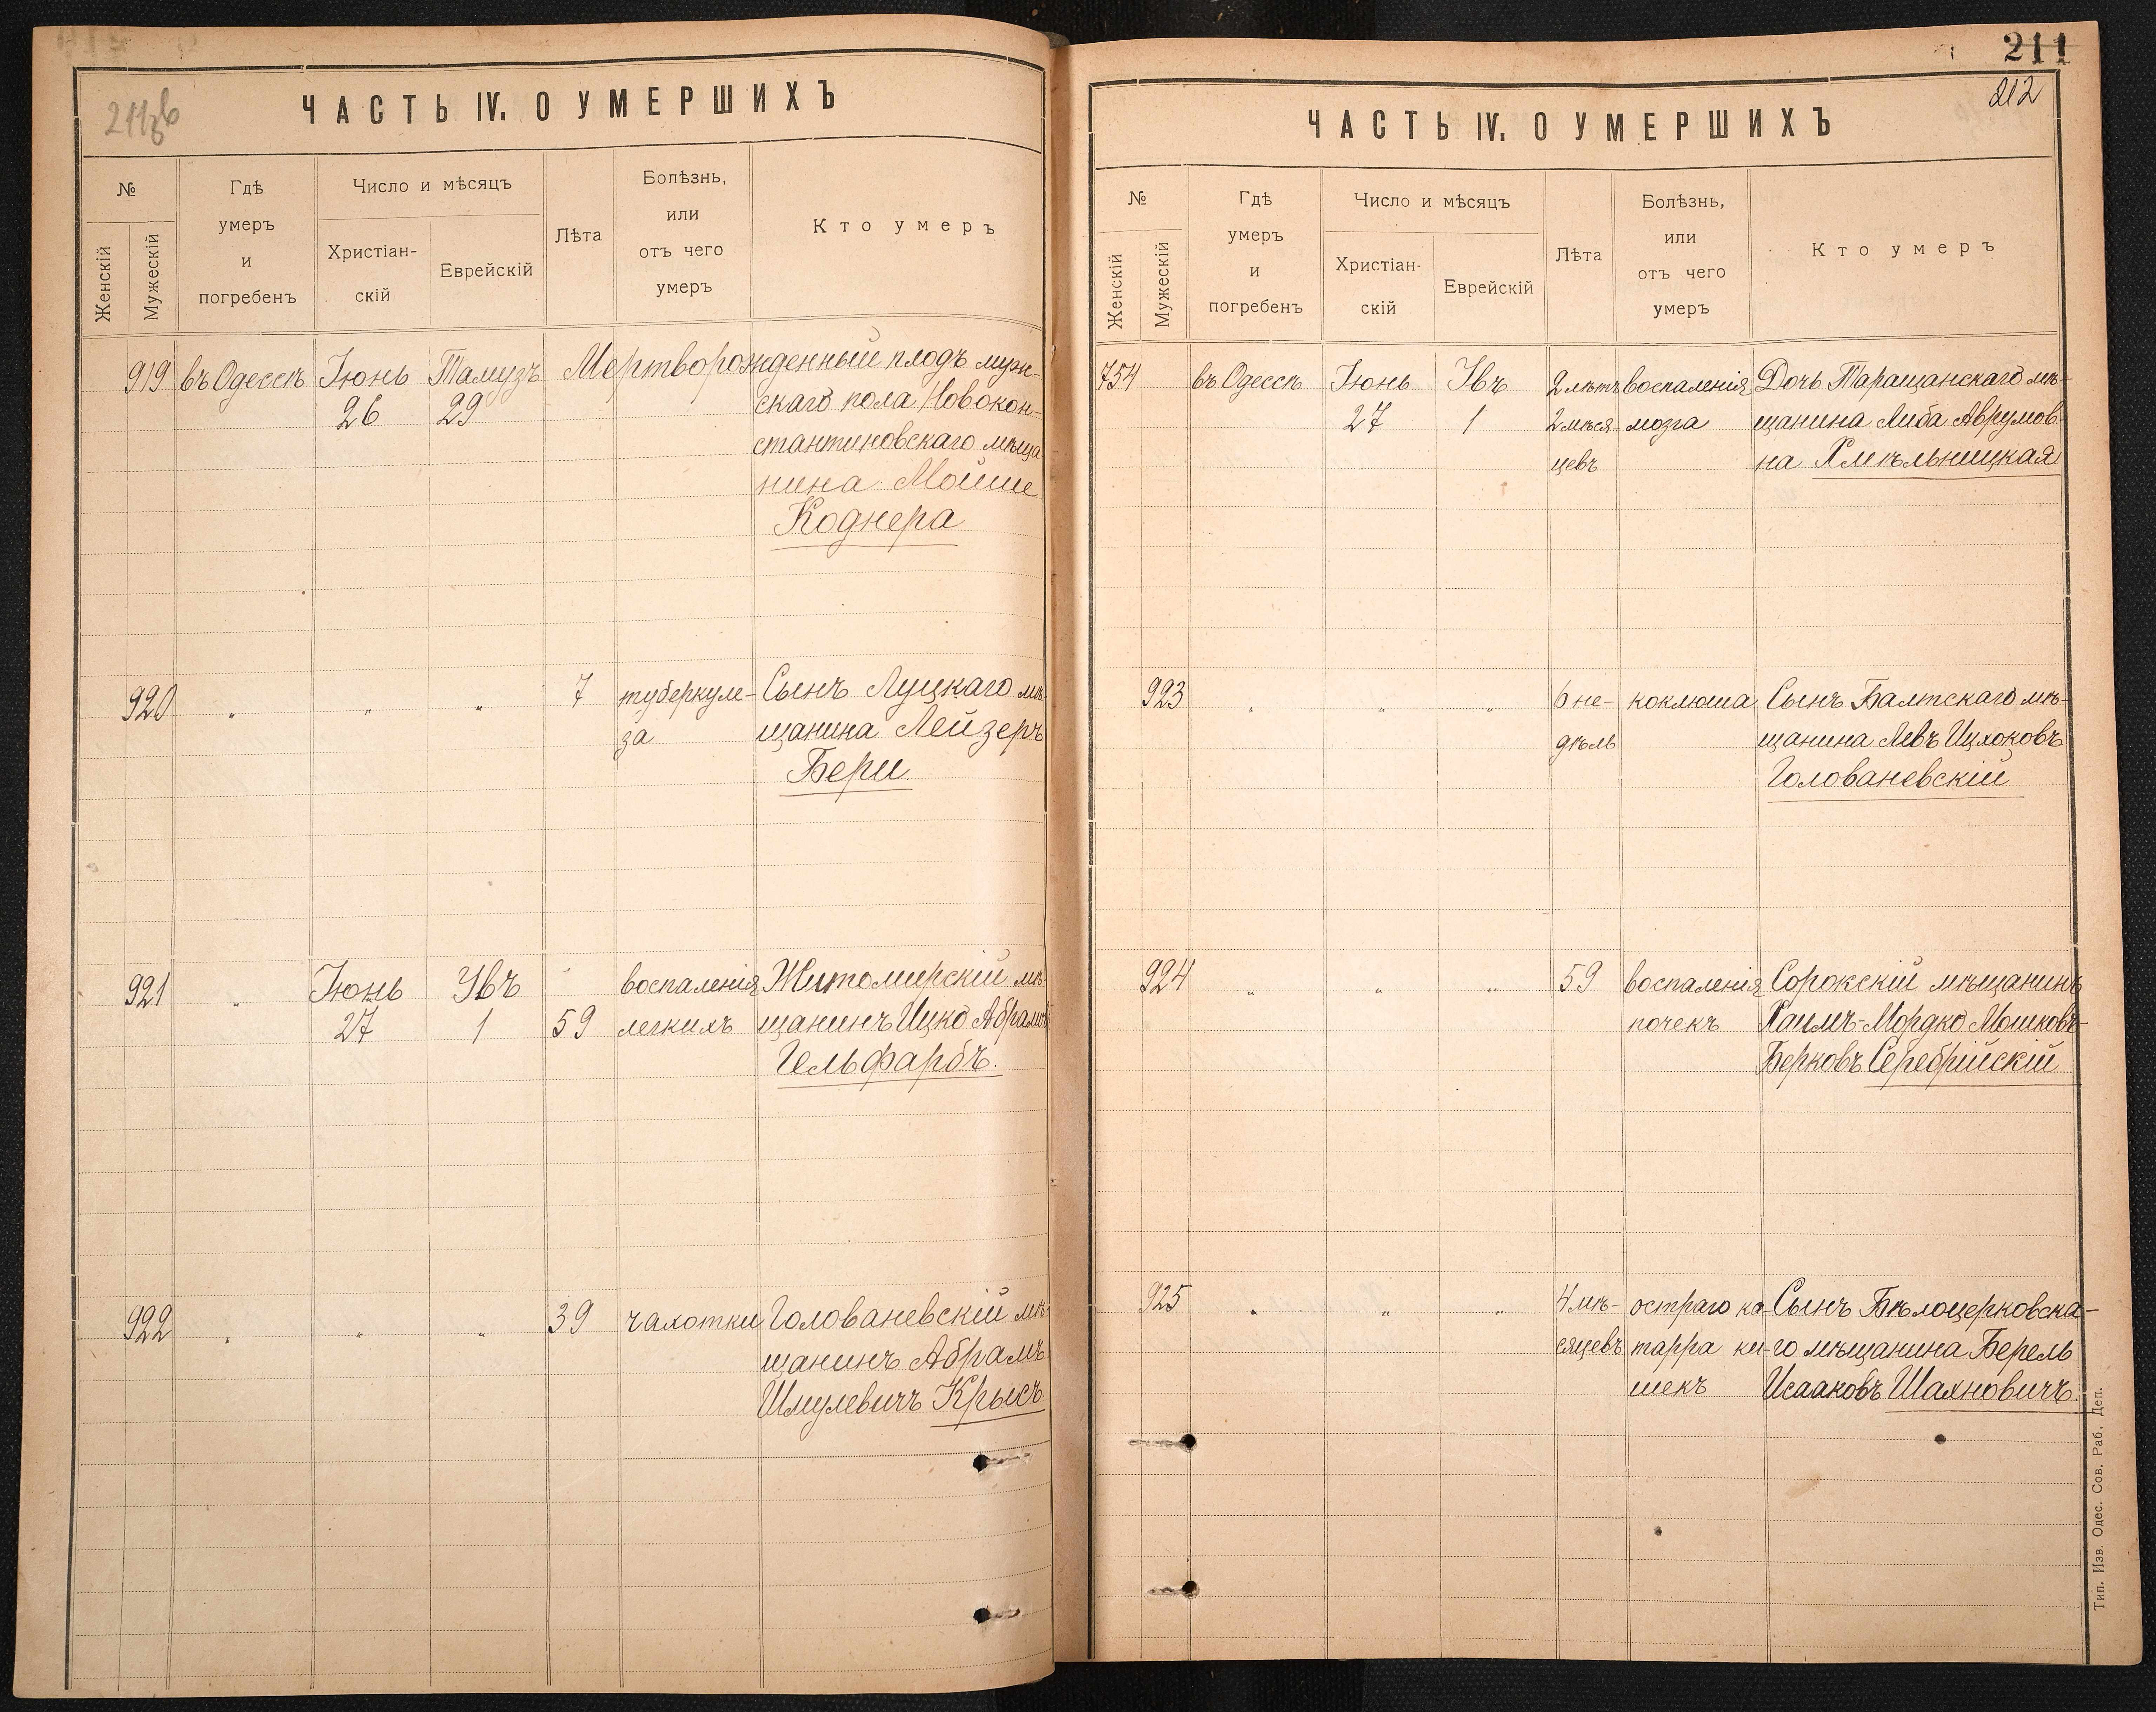 211зв
ЧАСТЬ IV. О УМЕРШИХЪ
№
Женскій
Мужескій
Гдѣ
умеръ
и
погребенъ
Число и мѣсяцъ
Христіан-
скій
Еврейскій
Лѣта
Болѣзнь,
или
отъ чего
умеръ
Кто умеръ
919 въ Одессѣ Іюнь Тамузъ Мертворожденный плодъ муж-
26 29 скаго пола Новокон-
стантиновскаго мѣща-
нина Мойше
Коднера
920 „ „ „ 7 туберкуле- Сынъ Луцкаго мѣ-
за щанина Лейзеръ
Бери
921 „ Іюнь Увъ воспаленія Житомирскій мѣ-
27 1 59 легкихъ щанинъ Ицко Абрамовъ
Гельфарбъ.
922 „ „ „ 39 чахотки Голованевскій мѣ-
щанинъ Абрамъ
Шмулевичъ Крысъ
211
212
ЧАСТЬ IV. О УМЕРШИХЪ
№
Женскій
Мужескій
Гдѣ
умеръ
и
погребенъ
Число и мѣсяцъ
Христіан-
скій
Еврейскій
Лѣта
Болѣзнь,
или
отъ чего
умеръ
Кто умеръ
754 въ Одессѣ Іюнь Увъ 2 лѣтъ воспаленія Дочь Таращанскаго мѣ-
27 1 2 мѣся- мозга щанина Либа Аврумов-
цевъ на Хмѣльницкая
923 „ „ „ 6 не- коклюша Сынъ Балтскаго мѣ-
дѣль щанина Левъ Ицхоковъ
Голованевскій
924 „ „ „ 59 воспаленія Сорокскій мѣщанинъ
почекъ Хаимъ-Мордко Мошковъ-
Берковъ Серебрійскій
925 „ „ „ 4 мѣ- остраго ка- Сынъ Бѣлоцерковска-
сяцевъ тарра ки- го мѣщанина Берель
шекъ Исааковъ Шахновичъ.
Тип. Изв. Одес. Сов. Раб. Деп.